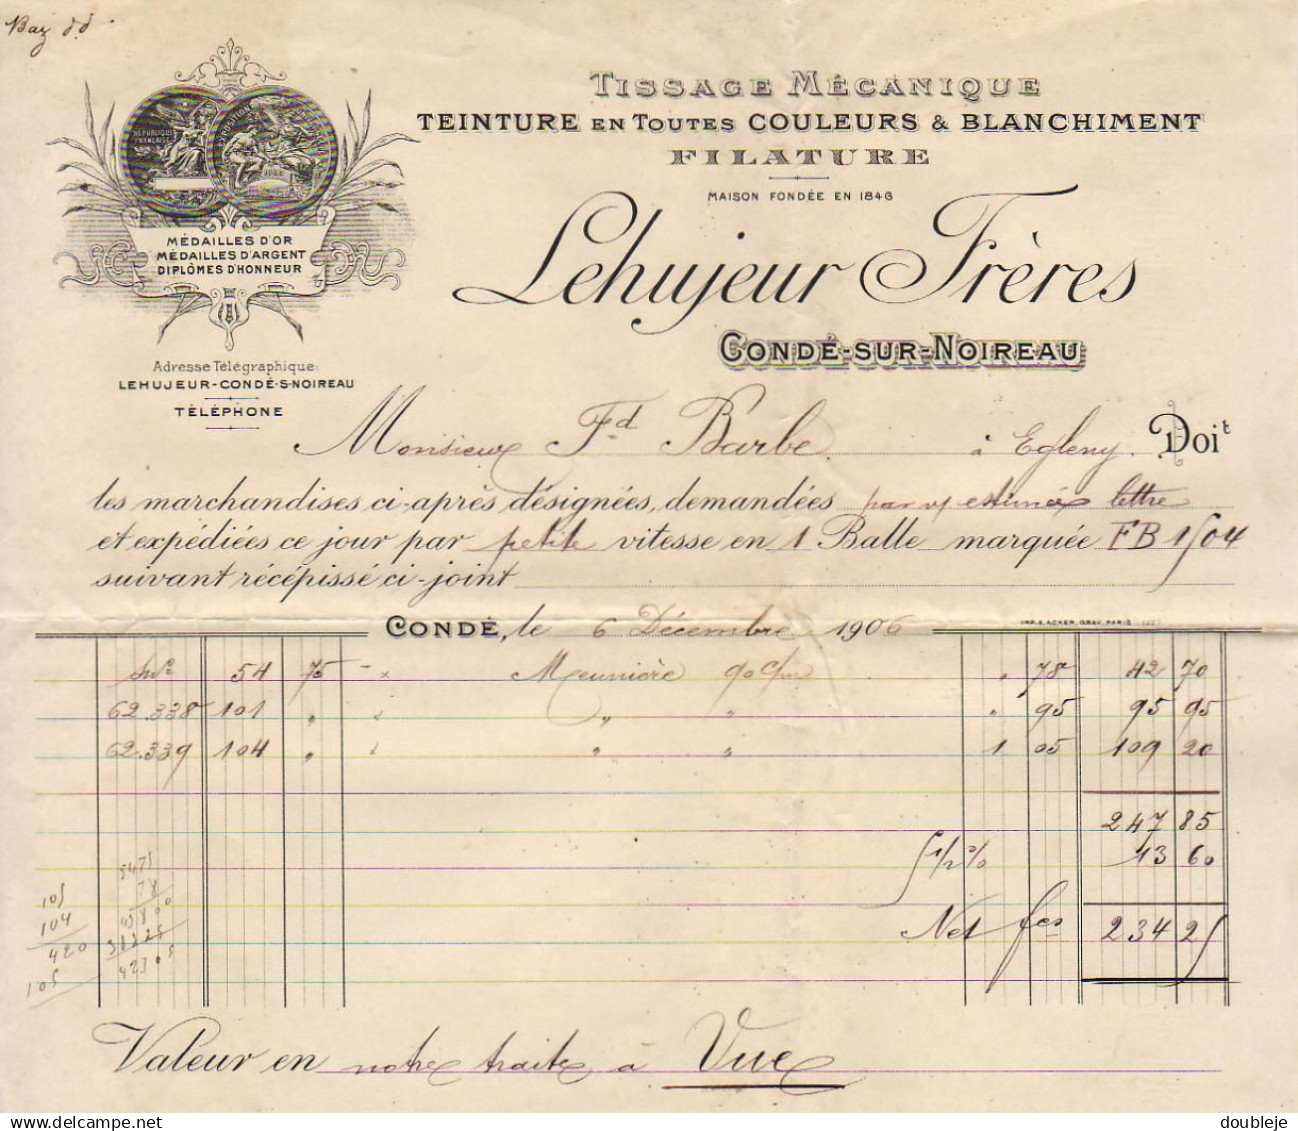 Baz d.d.
TISSAGE MÉCANIQUE
TEINTURE EN TOUTES COULEURS & BLANCHIMENT
FILATURE
MAISON FONDÉE EN 1846
RÉPUBLIQUE FRANÇAISE
EXPOSITION
MÉDAILLES D'OR
MÉDAILLES D'ARGENT
DIPLÔMES D'HONNEUR
Lehujeur Frères
CONDÉ-SUR-NOIREAU
Adresse Télégraphique:
LEHUJEUR-CONDÉ-S-NOIREAU
TÉLÉPHONE
Monsieur Fd Barbe à Egleny Doit
les marchandises ci-après désignées, demandées par v/ estimée lettre
et expédiées ce jour par petite vitesse en 1 Balle marquée FB 1504
suivant récépissé ci-joint
CONDÉ, le 6 Décembre 1906
IMP. E. ACKER, GRAV. PARIS
54 75 - × Meunière 90 c/m " 78 42 70
62.338 101 " × " " " 95 95 95
62.339 104 " × " " 1 05 109 20
247 85
5 1/2 % 13 60
Net fcs 234 25
5475
78
43800
38325
42705
105
104
420
105
Valeur en notre traite à Vue
doubleje